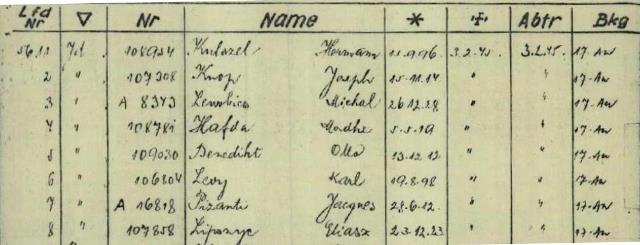 Lfd Nr ▽ Nr Name * ✝ Abtr Bkg
5611 Jd 108954 Hermann 11.9.96. 3.2.45. 3.2.45. 17-Au
2 " 107308 Knop Joseph 15.11.14 " " 17-Au
3 " A 8343 Michal 26.12.28 " " 17-Au
4 " 108781 Hafda 5.5.19 " " 17-Au
5 " 109030 Benedikt Otto 13.12.12 " " 17-Au
6 " 106804 Levy Karl 19.8.98 " " 17-Au
7 " A 16818 Pizanti Jacques 28.6.12. " " 17-Au
8 " 107858 Eliasz 23.12.23 " " 17-Au